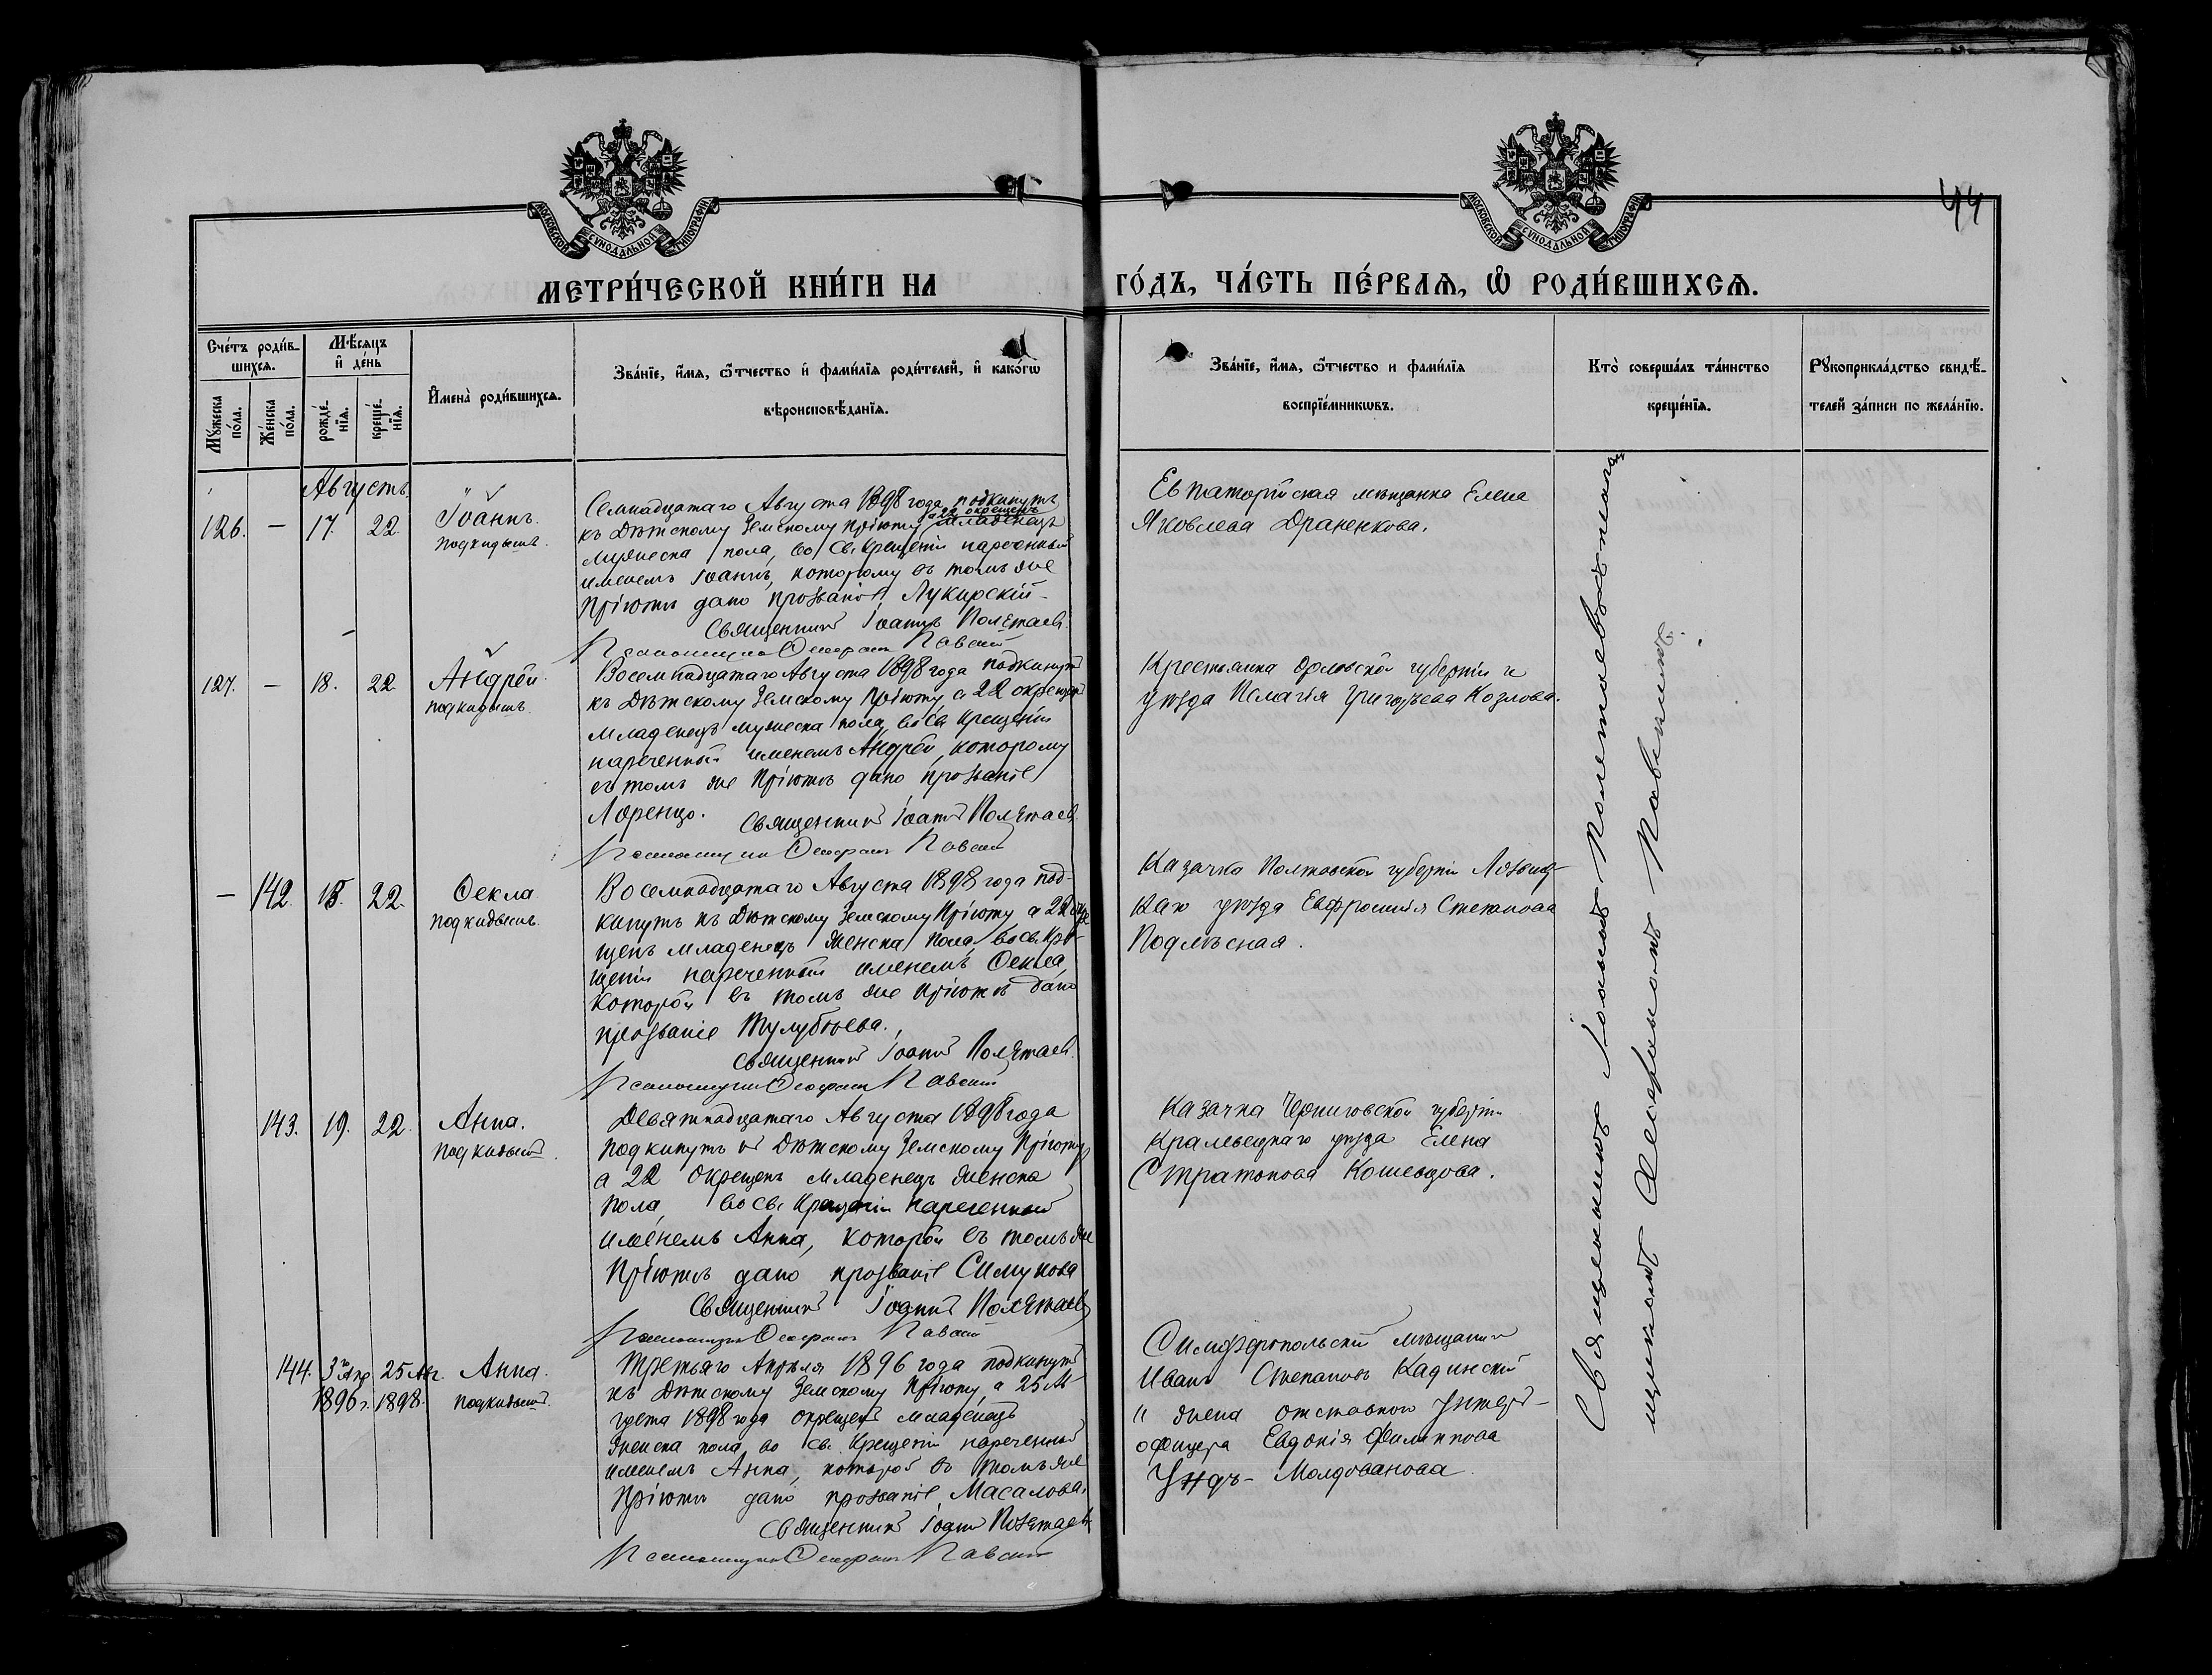 44
МОСКОВСКОЙ СѴНОДАЛЬНОЙ ТИПОГРАФІИ
МОСКОВСКОЙ СѴНОДАЛЬНОЙ ТИПОГРАФІИ
МЕТРИ́ЧЕСКОЙ КНИ́ГИ НА ГО́ДЪ, ЧА́СТЬ ПЕ́РВАѦ, Ѽ РОДИ́ВШИХСѦ.
Сче́тъ роди́в-
шихсѧ.
Мꙋ́жеска по́ла.
Же́нска по́ла.
Мѣ́сѧцъ
и҆ де́нь
рожде́-
нїѧ.
креще́-
нїѧ.
И҆мена̀ роди́вшихсѧ.
Зва́нїе, и҆́мѧ, ѻ҆́тчество и҆ фами́лїѧ роди́телей, и҆ како́гѡ
вѣроисповѣ́данїѧ.
Зва́нїе, и҆́мѧ, ѻ҆́тчество и фами́лїѧ
воспрїе́мникѡвъ.
Кто̀ соверша́лъ та́инство
креще́нїѧ.
Рꙋкоприкла́дство свидѣ́-
телей за́писи по жела́нїю.
Августъ.
126. — 17. 22. Іоаннъ.
подкидышъ.
Семнадцатаго Августа 1898 года подкинутъ
къ Дѣтскому Земскому Пріюту а 22 окрещенъ младенецъ
мужеска пола, во Св. Крещеніи нареченный
именемъ Іоаннъ, которому въ томъ же
Пріютѣ дано прозваніе Лукирскій
Священникъ Іоаннъ Полѣтаевъ.
Псаломщикъ Павскій
Евпаторійская мѣщанка Елена
Яковлева Драненкова.
127. — 18. 22. Андрей.
подкидышъ.
Восемнадцатаго Августа 1898 года подкинутъ
къ Дѣтскому Земскому Пріюту, а 22 окрещенъ
младенецъ мужеска пола, во Св. Крещеніи
нареченный именемъ Андрей, которому
въ томъ же Пріютѣ дано прозваніе
Лоренцо.
Священникъ Іоаннъ Полѣтаевъ.
Псаломщикъ Павскій
Крестьянка Орловской губерніи и
уѣзда Пелагія Григорьева Козлова.
— 142. 18. 22. Ѳекла
подкидышъ.
Восемнадцатаго Августа 1898 года под-
кинутъ къ Дѣтскому Земскому Пріюту а 22 окре
щенъ младенецъ женска пола, во Св. Кре-
щеніи нареченный именемъ Ѳекла,
которой въ томъ же Пріютѣ дано
прозваніе Тулубьева.
Священникъ Іоаннъ Полѣтаевъ.
Псаломщикъ Павскій
Казачка Полтавской губерніи
каго уѣзда Евфросинія Степанова
Подлѣсная.
143. 19. 22. Анна.
подкидышъ.
Девятнадцатаго Августа 1898 года
подкинутъ къ Дѣтскому Земскому Пріюту,
а 22 окрещенъ младенецъ женска
пола, во Св. Крещеніи нареченный
именемъ Анна, которой въ томъ же
Пріютѣ дано прозваніе Симукова
Священникъ Іоаннъ Полѣтаевъ
Псаломщикъ Павскій
Казачка Черниговской губерніи
Кралевецкаго уѣзда Елена
Стратонова Кошевцова.
144. 3го Апр. 25 Авг. Анна.
1896 г. 1898. подкидышъ.
Третьяго Апрѣля 1896 года подкинутъ
къ Дѣтскому Земскому Пріюту, а 25 Ав
густа 1898 года окрещенъ младенецъ
женска пола, во Св. Крещеніи нареченный
именемъ Анна, которой въ томъ же
Пріютѣ дано прозваніе Масалова.
Священникъ Іоаннъ Полѣтаевъ
Псаломщикъ Павскій
Симферопольскій мѣщанинъ
Иванъ Степановъ Кадинскій
и жена отставного унтеръ-
офицера Евдокія Филиппова
Унгъ-Молдованова.
Священникъ Іоаннъ Полетаевъ
Павскій